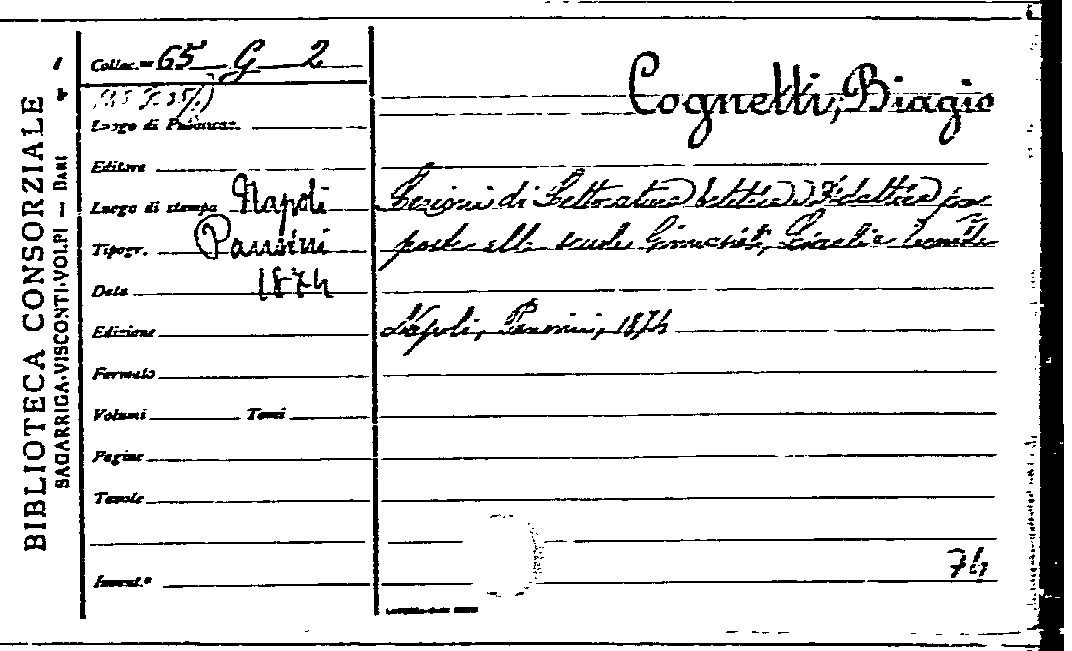 BIBLIOTECA CONSORZIALE
SAGARRIGA-VISCONTI-VOLPI — BARI
Colloc.ne 65 G 2
Luogo di Pubblicaz.
Editore
Luogo di stampa Napoli
Tipogr. Pansini
Data 1874
Edizione
Formato
Volumi Tomi
Pagine
Tavole
Invent.º
Cognetti, Biagio
Lezioni di Letteratura
poste alle scuole Ginnasiali, Liceali e
Napoli, Pansini, 1874
74